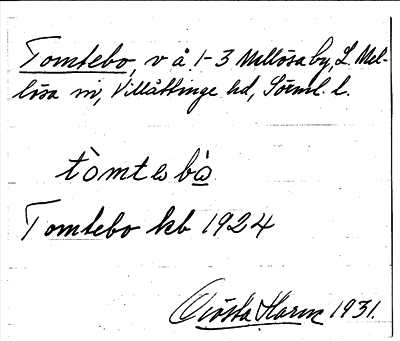 Tomtebo, v å 1-3 Mellösa by, L. Mel-
lösa sn, Villåttinge hd, Sörml. l.
tòmtebo̲
Tomtebo kb 1924
Gösta Harm 1931.